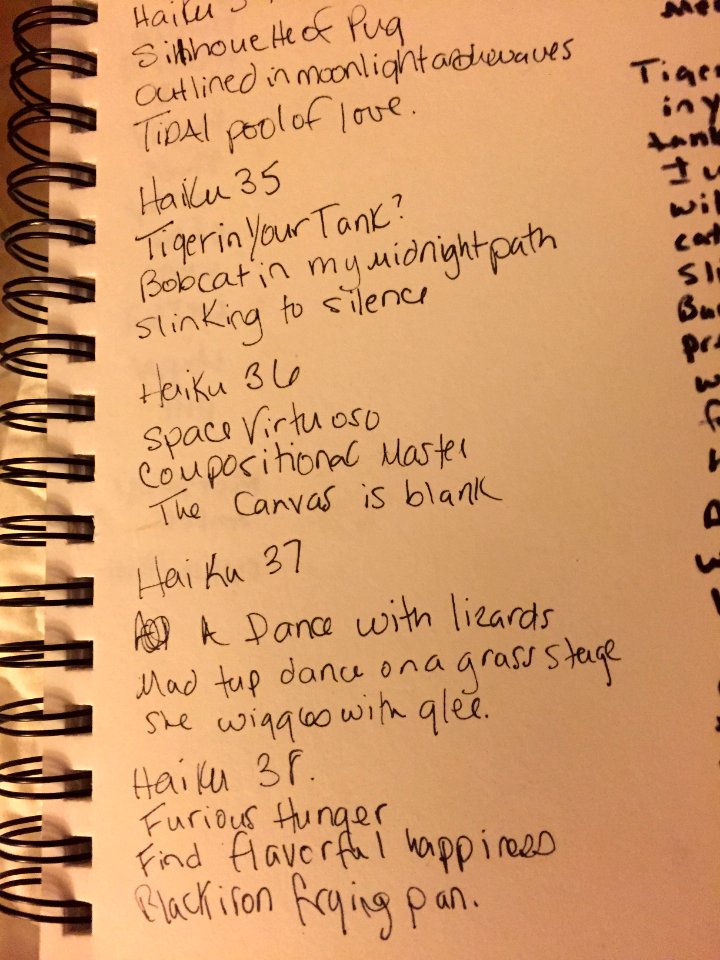 Haiku 3
Silhouette of Pug
outlined in moonlight and waves
Tidal pool of love.
Haiku 35
Tiger in Your Tank?
Bobcat in my midnight path
slinking to silence
Haiku 36
Space Virtuoso
Compositional Master
The Canvas is blank
Haiku 37
A Dance with lizards
Mad tap dance on a grass stage
she wiggles with glee.
Haiku 38.
Furious Hunger
Find flavorful happiness
Black iron frying pan.
Tige
in y
tank
I w
wil
cat
sli
Bu
pr
w